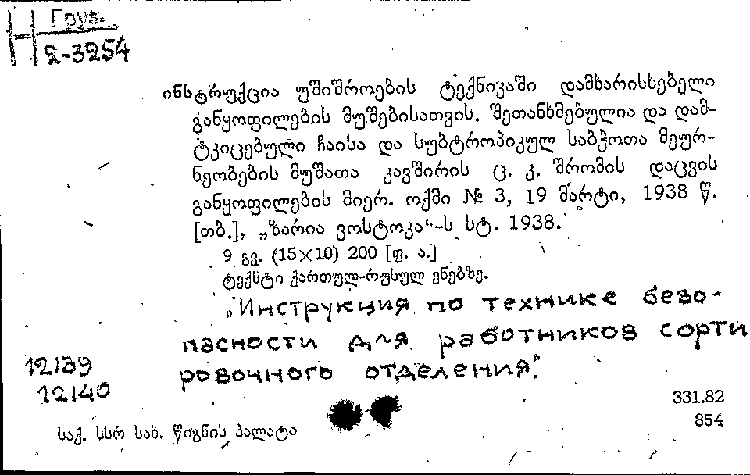 Н Груз.
2-3254
ინსტრუქცია უშიშროების ტექნიკაში დამხარისხებელი
განყოფილების მუშებისათვის. შეთანხმებულია და დამ-
ტკიცებული ჩაისა და სუბტროპიკულ საბჭოთა მეურ-
ნეობების მუშათა კავშირის ც. კ. შრომის დაცვის
განყოფილების მიერ. ოქმი № 3, 19 მარტი, 1938 წ.
[თბ.], „ზარია ვოსტოკა“-ს სტ. 1938.
9 გვ. (15×10) 200 [ფ. ა.]
ტექსტი ქართულ-რუსულ ენებზე.
„Инструкция по технике безо-
пасности для работников сорти
ровочного отделения."
12139
12140
331.82
854
საქ. სსრ სახ. წიგნის პალატა